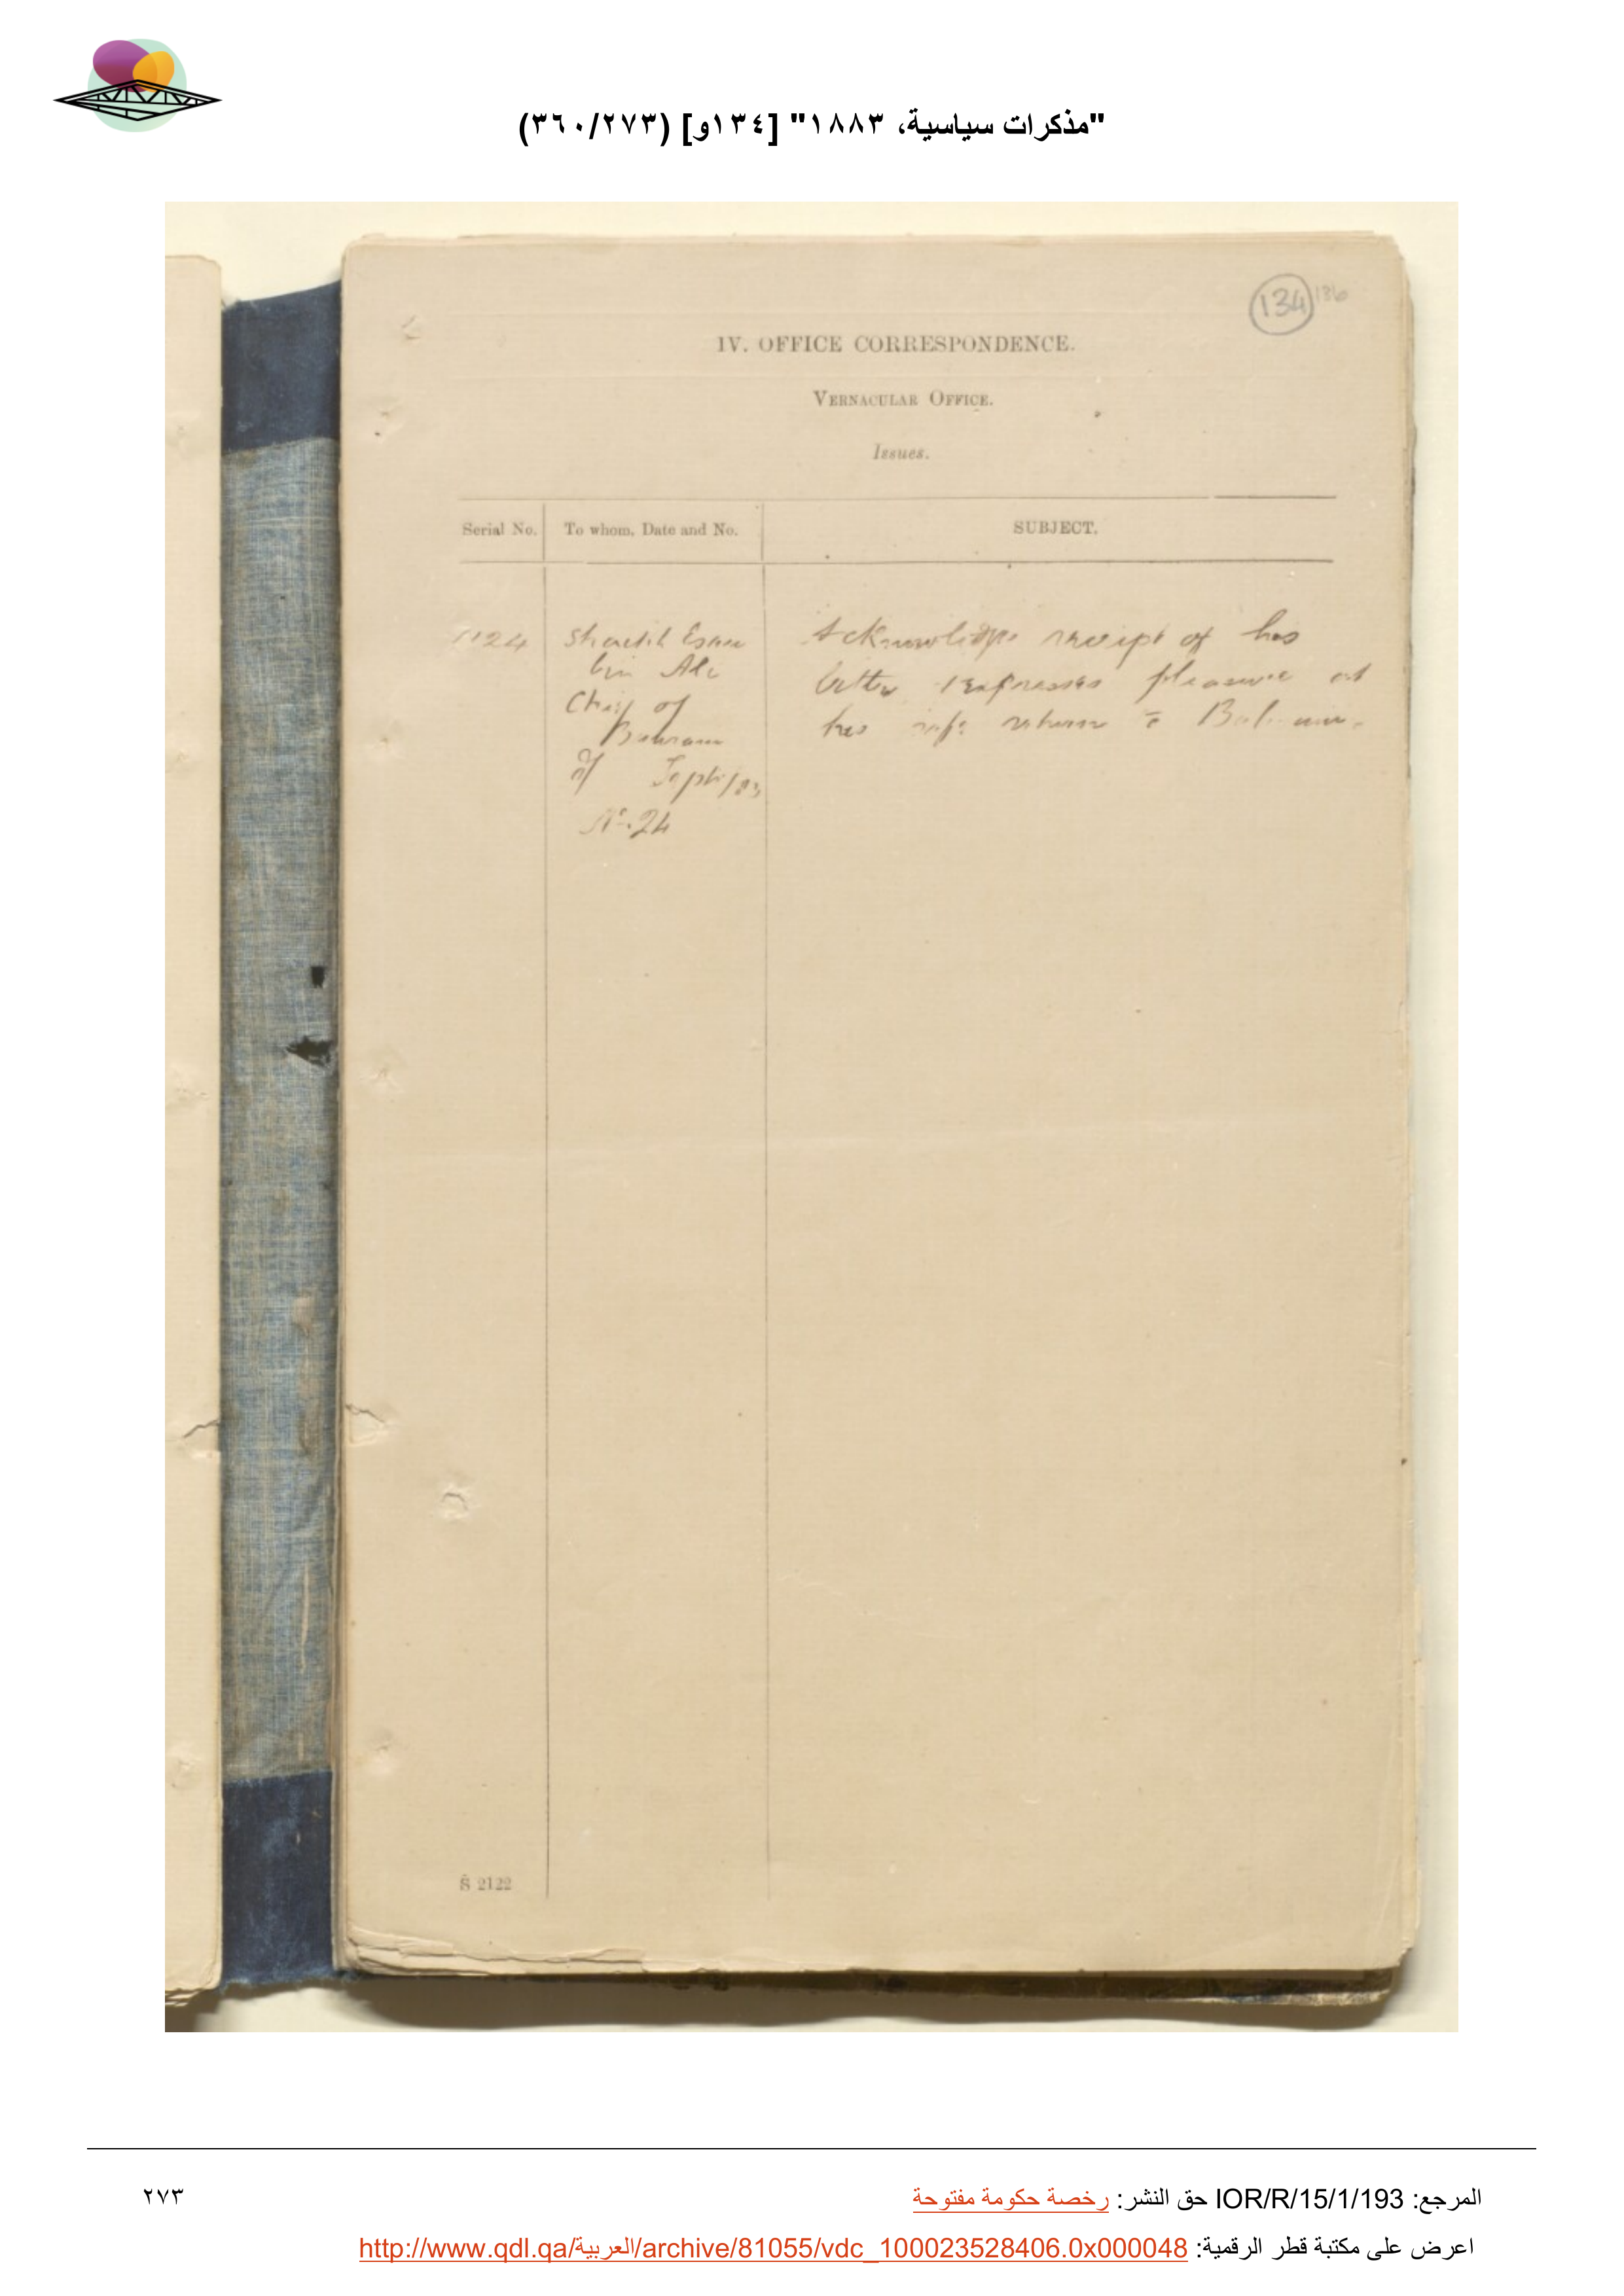 "مذكرات سياسية، ١٨٨٣" [١٣٤و] (٣٦٠/٢٧٣)
134 136
IV. OFFICE CORRESPONDENCE.
VERNACULAR OFFICE.
Issues.
Serial No. To whom, Date and No. SUBJECT.
1124
Shaikh Esau
bin Ali
Chief of
Bahrain
of Septr/83
No. 24
Acknowledges receipt of his
letter & expresses pleasure at
his safe return to Bahrain.
S 2122
المرجع: IOR/R/15/1/193 حق النشر: رخصة حكومة مفتوحة
٢٧٣
اعرض على مكتبة قطر الرقمية: http://www.qdl.qa/العربية/archive/81055/vdc_100023528406.0x000048